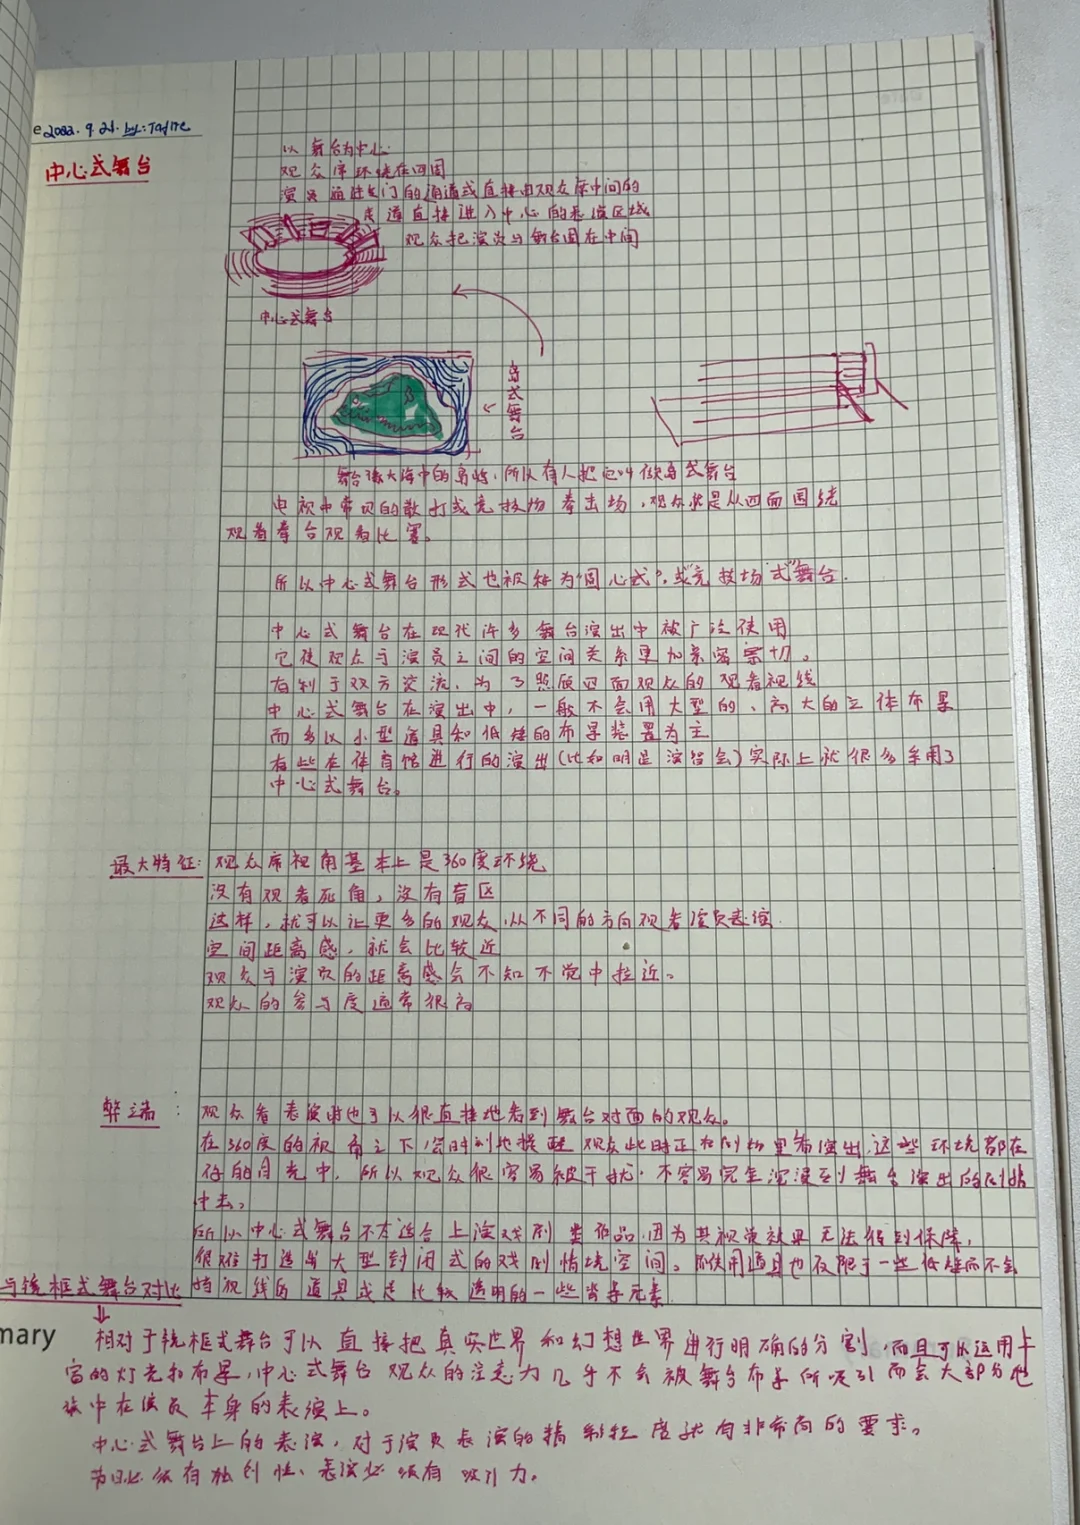 e 2022.9.21. by:
中心式舞台
以舞台为中心
观众席环绕在四周
演员通过专门的通道或直接由观众席中间的
走道直接进入中心的表演区域
观众把演员与舞台围在中间
中心式舞台
岛式舞台
舞台像大海中的岛屿,所以有人把它叫做岛式舞台
电视中常见的散打或竞技场 拳击场,观众就是从四面围绕
观看拳台观看比赛。
所以中心式舞台形式也被称为"圆心式",或"竞技场式"舞台.
中心式舞台在现代许多舞台演出中被广泛使用
它使观众与演员之间的空间关系更加紧密亲切。
有利于双方交流,为了照顾四面观众的观看视线
中心式舞台在演出中,一般不会用大型的、高大的立体布景
而多以小型道具和低矮的布景装置为主
有些在体育馆进行的演出(比如明星演唱会)实际上就很多采用了
中心式舞台。
最大特征:观众席视角基本上是360度环绕
没有观看死角,没有盲区
这样,就可以让更多的观众,从不同的方向观看演员表演.
空间距离感,就会比较近
观众与演员的距离感会不知不觉中拉近。
观众的参与度通常很高
弊端:观众看表演时也可以很直接地看到舞台对面的观众。
在360度的视角之下会时刻地提醒观众此时正在剧场里看演出,这些环境都在
存的目光中,所以观众很容易被干扰.不容易完全沉浸到舞台演出的剧情
中去。
所以中心式舞台不太适合上演戏剧类作品,因为其视觉效果无法得到保障,
很难打造出大型封闭式的戏剧情境空间。所使用道具也仅限于一些低矮而不会
挡视线的道具或是比较透明的一些背景元素
与镜框式舞台对比
mary
相对于镜框式舞台可以直接把真实世界和幻想世界进行明确的分割,而且可以运用丰
富的灯光和布景,中心式舞台观众的注意力几乎不会被舞台布景所吸引而会大部分地
集中在演员本身的表演上。
中心式舞台上的表演,对于演员表演的精彩程度就有非常高的要求。
必须有独创性、表演必须有吸引力。